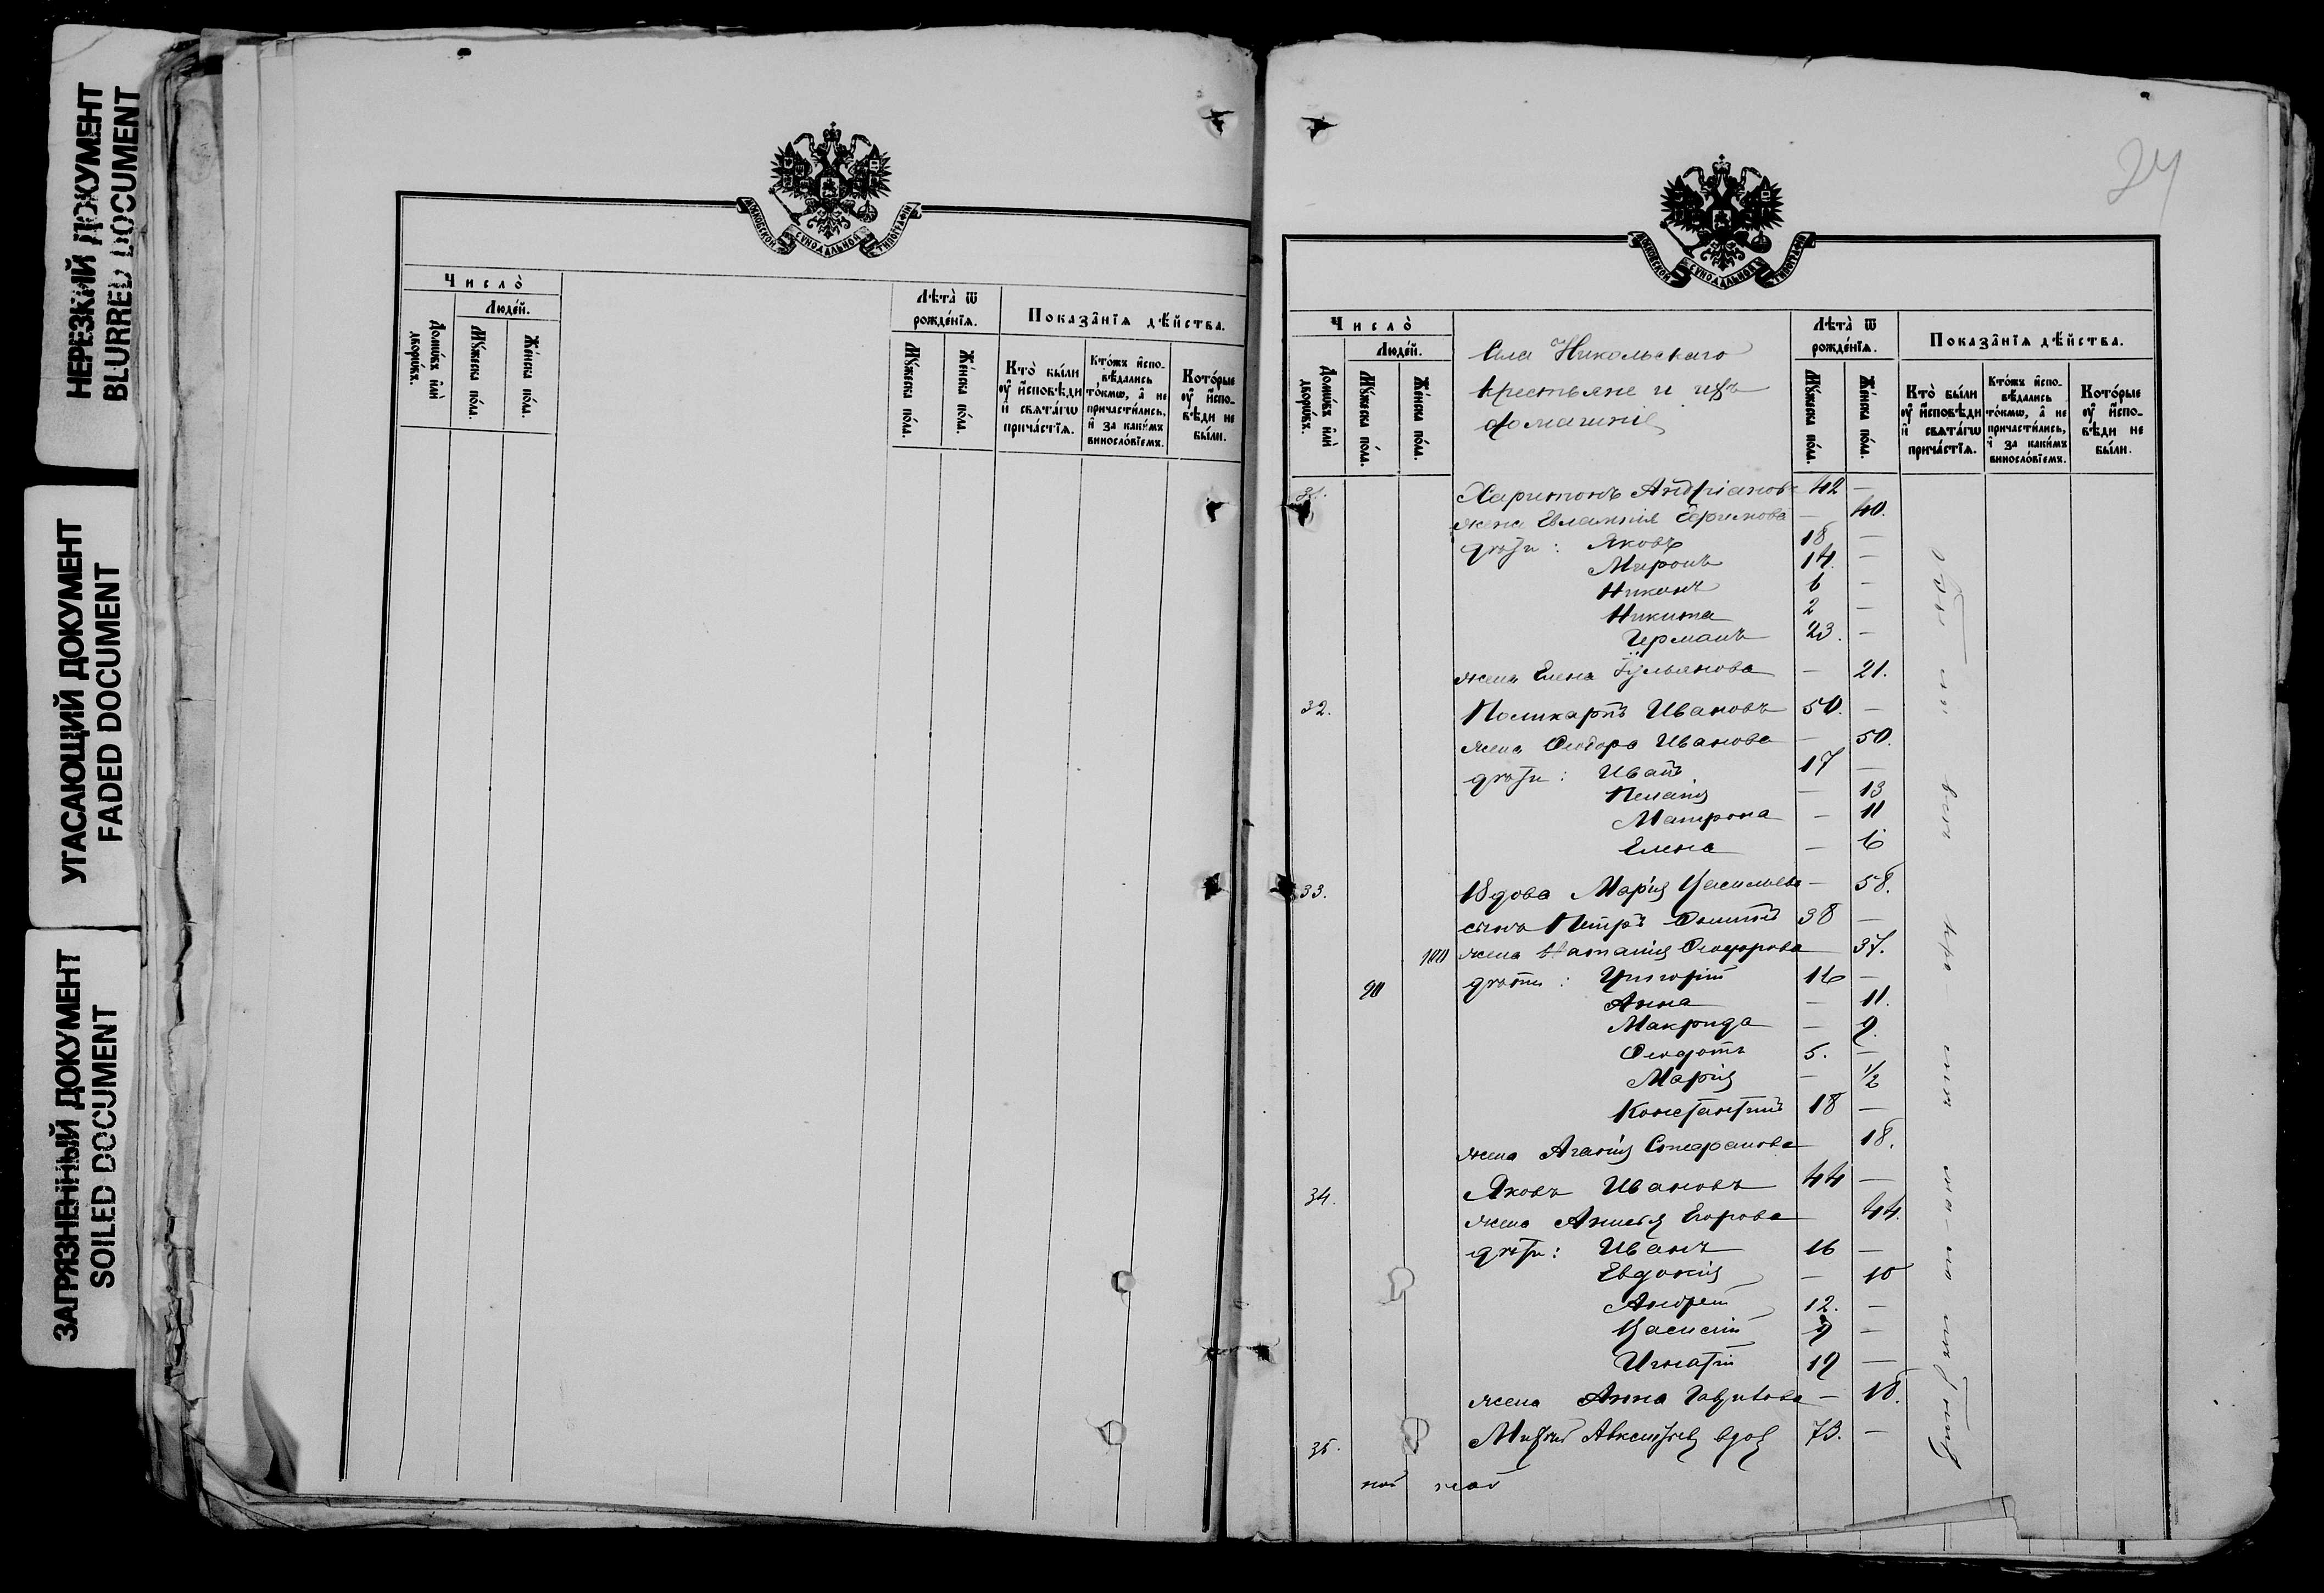 НЕРЕЗКИЙ ДОКУМЕНТ
BLURRED DOCUMENT
УГАСАЮЩИЙ ДОКУМЕНТ
FADED DOCUMENT
ЗАГРЯЗНЕННЫЙ ДОКУМЕНТ
SOILED DOCUMENT
МОСКОВСКОЙ СѴНОДАЛЬНОЙ ТИПОГРАФІИ
Число̀
Людéй.
Домѡ́въ и҆лѝ дворѡ́въ.
Мꙋ́жеска по́ла.
Же́нска по́ла.
Лѣ́та ѿ рожде́нїѧ.
Мꙋ́жеска по́ла.
Же́нска по́ла.
Показа̑нїѧ дѣ́йства.
Кто̀ бы́ли ᲂу҆ и҆спо́вѣди и҆ свѧта́гѡ прича́стїѧ.
Кто́жъ и҆спо­вѣдались то́кмѡ, а҆ не причасти́лись, и҆ за каки́мъ винносло́вїемъ.
Кото́рые ᲂу҆ и҆спо­вѣди не бы́ли.
24
МОСКОВСКОЙ СѴНОДАЛЬНОЙ ТИПОГРАФІИ
Число̀
Людéй.
Домѡ́въ и҆лѝ дворѡ́въ.
Мꙋ́жеска по́ла.
Же́нска по́ла.
Села Никольскаго
крестьяне и ихъ
домашніе
Лѣ́та ѿ рожде́нїѧ.
Мꙋ́жеска по́ла.
Же́нска по́ла.
Показа̑нїѧ дѣ́йства.
Кто̀ бы́ли ᲂу҆ и҆спо́вѣди и҆ свѧта́гѡ прича́стїѧ.
Кто́жъ и҆спо­вѣдались то́кмѡ, а҆ не причасти́лись, и҆ за каки́мъ винносло́вїемъ.
Кото́рые ᲂу҆ и҆спо­вѣди не бы́ли.
31. Харитонъ Андріановъ 42 —
жена Евлампія — 40.
дѣти: Яковъ 18 —
Миронъ 14. —
Никонъ 6 —
Никита 2 —
Германъ 23. —
жена Елена Іульянова — 21.
32. Поликарпъ Ивановъ 50. —
жена Ѳеодора Иванова — 50.
дѣти: Иванъ 17 —
Пелагія — 13
Матрона — 11
Елена — 6
33. Вдова Марія Васильева — 58.
сынъ Петръ 38 —
100 жена Наталия Ѳеодорова 37.
90 дѣти: Григорій 16 —
Анна — 11.
Макрида — 9.
Ѳеодотъ 5. —
Марія — 1/2
Константинъ 18 —
жена Агафія Стефанова 18.
34. Яковъ Ивановъ 44 —
жена Анисія Егорова 44.
дѣти: Иванъ 16 —
Евдокія — 10
Андрей 12. —
Василій 9 —
Игнатій 19 —
жена Анна Гаврилова — 18.
35. Михаилъ Авксентьев вдов 73. —